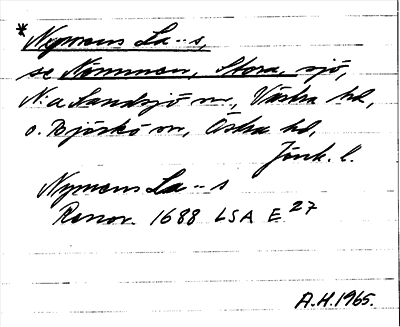 *Nymens La--s,
se Nömmen, Stora, sjö,
N:a Sandsjö sn, Västra hd,
o. Björkö sn, Östra hd,
Jönk. l.
Nymens La--s
Renov. 1688 LSA E 27
A.H. 1965.